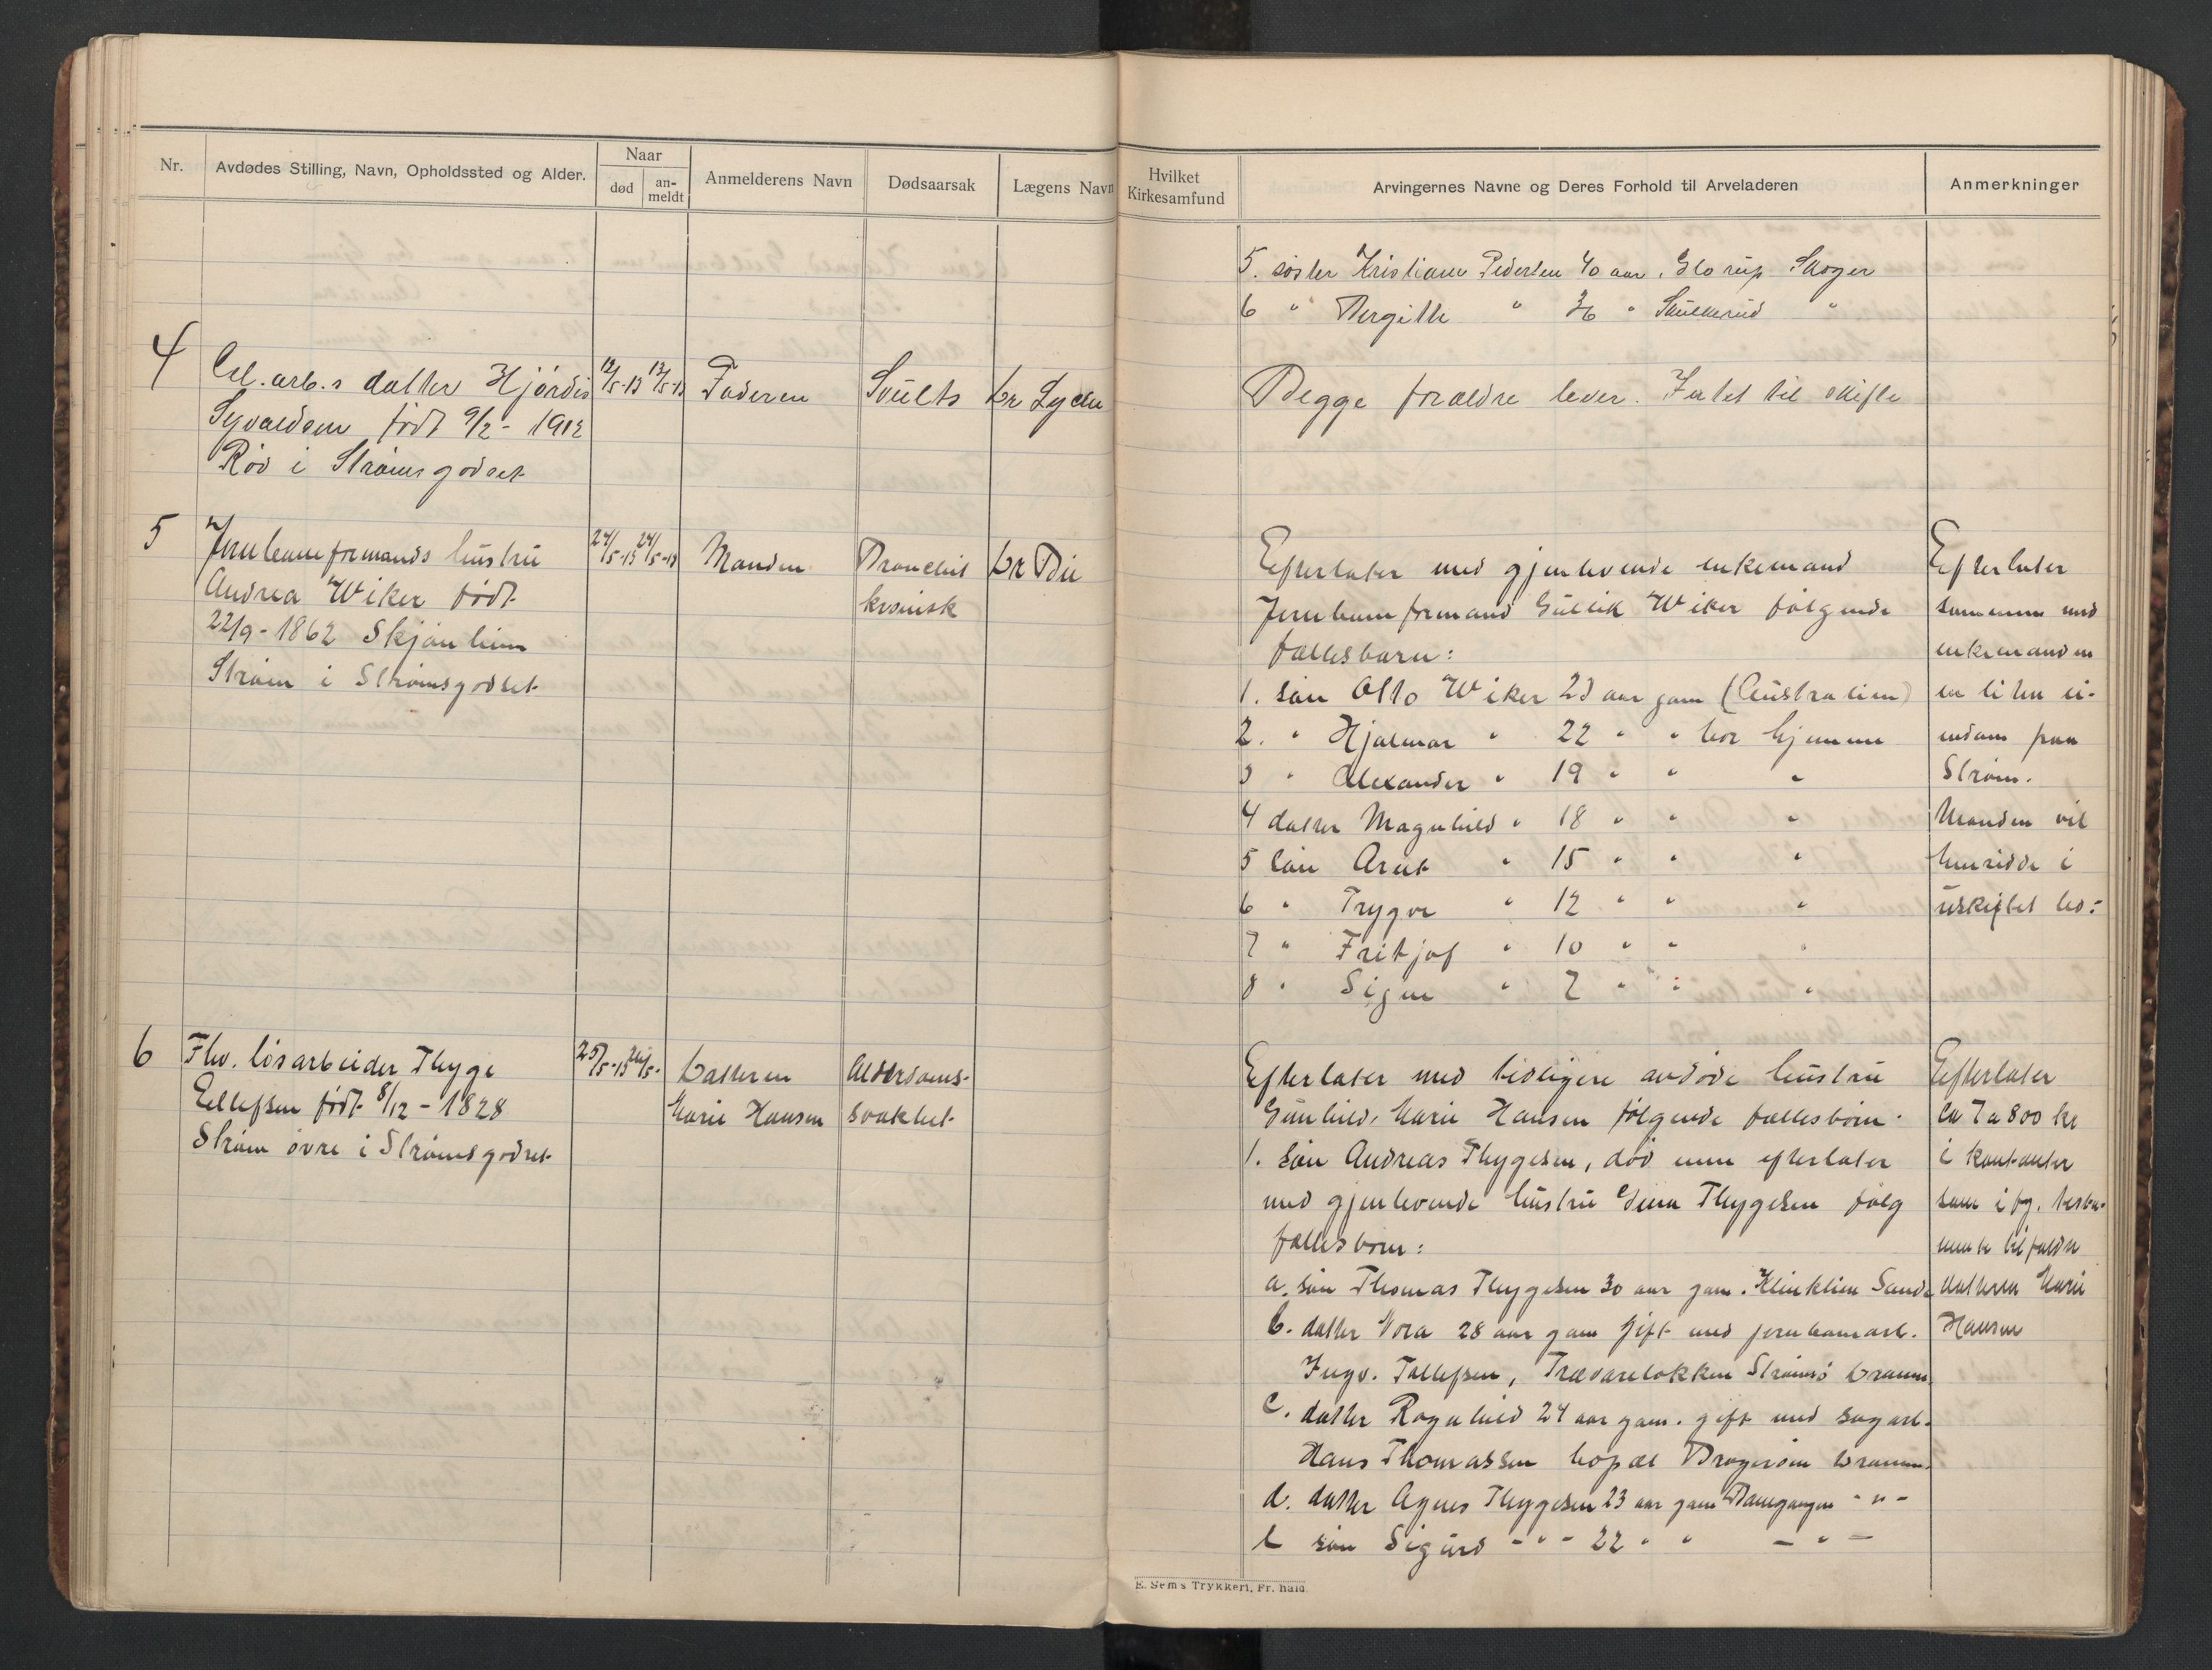 Nr.
Avdødes Stilling, Navn, Opholdssted og Alder.
Naar
død
an-
meldt
Anmelderens Navn
Dødsaarsak
Lægens Navn
Hvilket
Kirkesamfund
Arvingernes Navne og Deres Forhold til Arveladeren
Anmerkninger
5. søster Kristiane Pedersen 40 aar, Glorup Skoger
6 " Bergithe " 36 "
4
Cel. arb.s datter Hjørdis
Syvaldsen født 9/2 - 1912
Rød i Strømsgodset
12/5-13 13/5-13
Faderen
Svults
Dr Lyche
Begge forældre lever. Intet til skifte
5
Jernbaneformands hustru
Andrea Wiker født
22/9 - 1862 Skjønheim
Strøm i Strømsgodset
24/5-13 24/5-13
Manden
Bronchit
kronisk
Dr Bie
Efterlater med gjenlevende enkemand
Jernbaneformand Gullik Wiker følgende
fællesbarn:
1. søn Otto Wiker 23 aar gam (Australien)
2. " Hjalmar " 22 " " bor hjemme
3 " Alexander " 19 " " "
4 datter Magnhild " 18 " " "
5 søn Arnt " 15 " " "
6 " Trygve " 12 " " "
7 " Fritjof " 10 " " "
8 " Signe " 7 " " "
Efterlater
sammen med
enkemanden
en liten ei-
endom paa
Strøm.
Manden vil
hensidde i
uskiftet bo.-
6
Fhv. løsarbeider Thyge
Ellefsen født 8/12 - 1828
Strøm øvre i Strømsgodset
25/5-13 26/5-
Datteren
Marie Hansen
Alderdoms-
svakhet
Efterlater med tidligere avdøde hustru
Gunhild Marie Hansen følgende fællesbørn.
1. søn Andreas Thygesen, død men efterlater
med gjenlevende hustru Gina Thygesen følg
fællesbørn:
a. søn Thomas Thygesen 30 aar gam. Sande
b. datter Nora 28 aar gam gift med jernbanearb.
Ingv. Tollefsen, Strømsø Dramm.
c. datter Ragnhild 24 aar gam. gift med sagarb.
Hans Thomassen bopæl Bragerøen Dramm.
d. datter Agnes Thygesen 23 aar gam Damgangen - " -
e søn Sigurd - " - 22 " " - " -
Efterlater
ca 7 a 800 kr
i kontanter
som i flg. testa-
mente tilfalder
datteren Marie
Hansen
E. Sem's Trykkeri, Fr. hald.